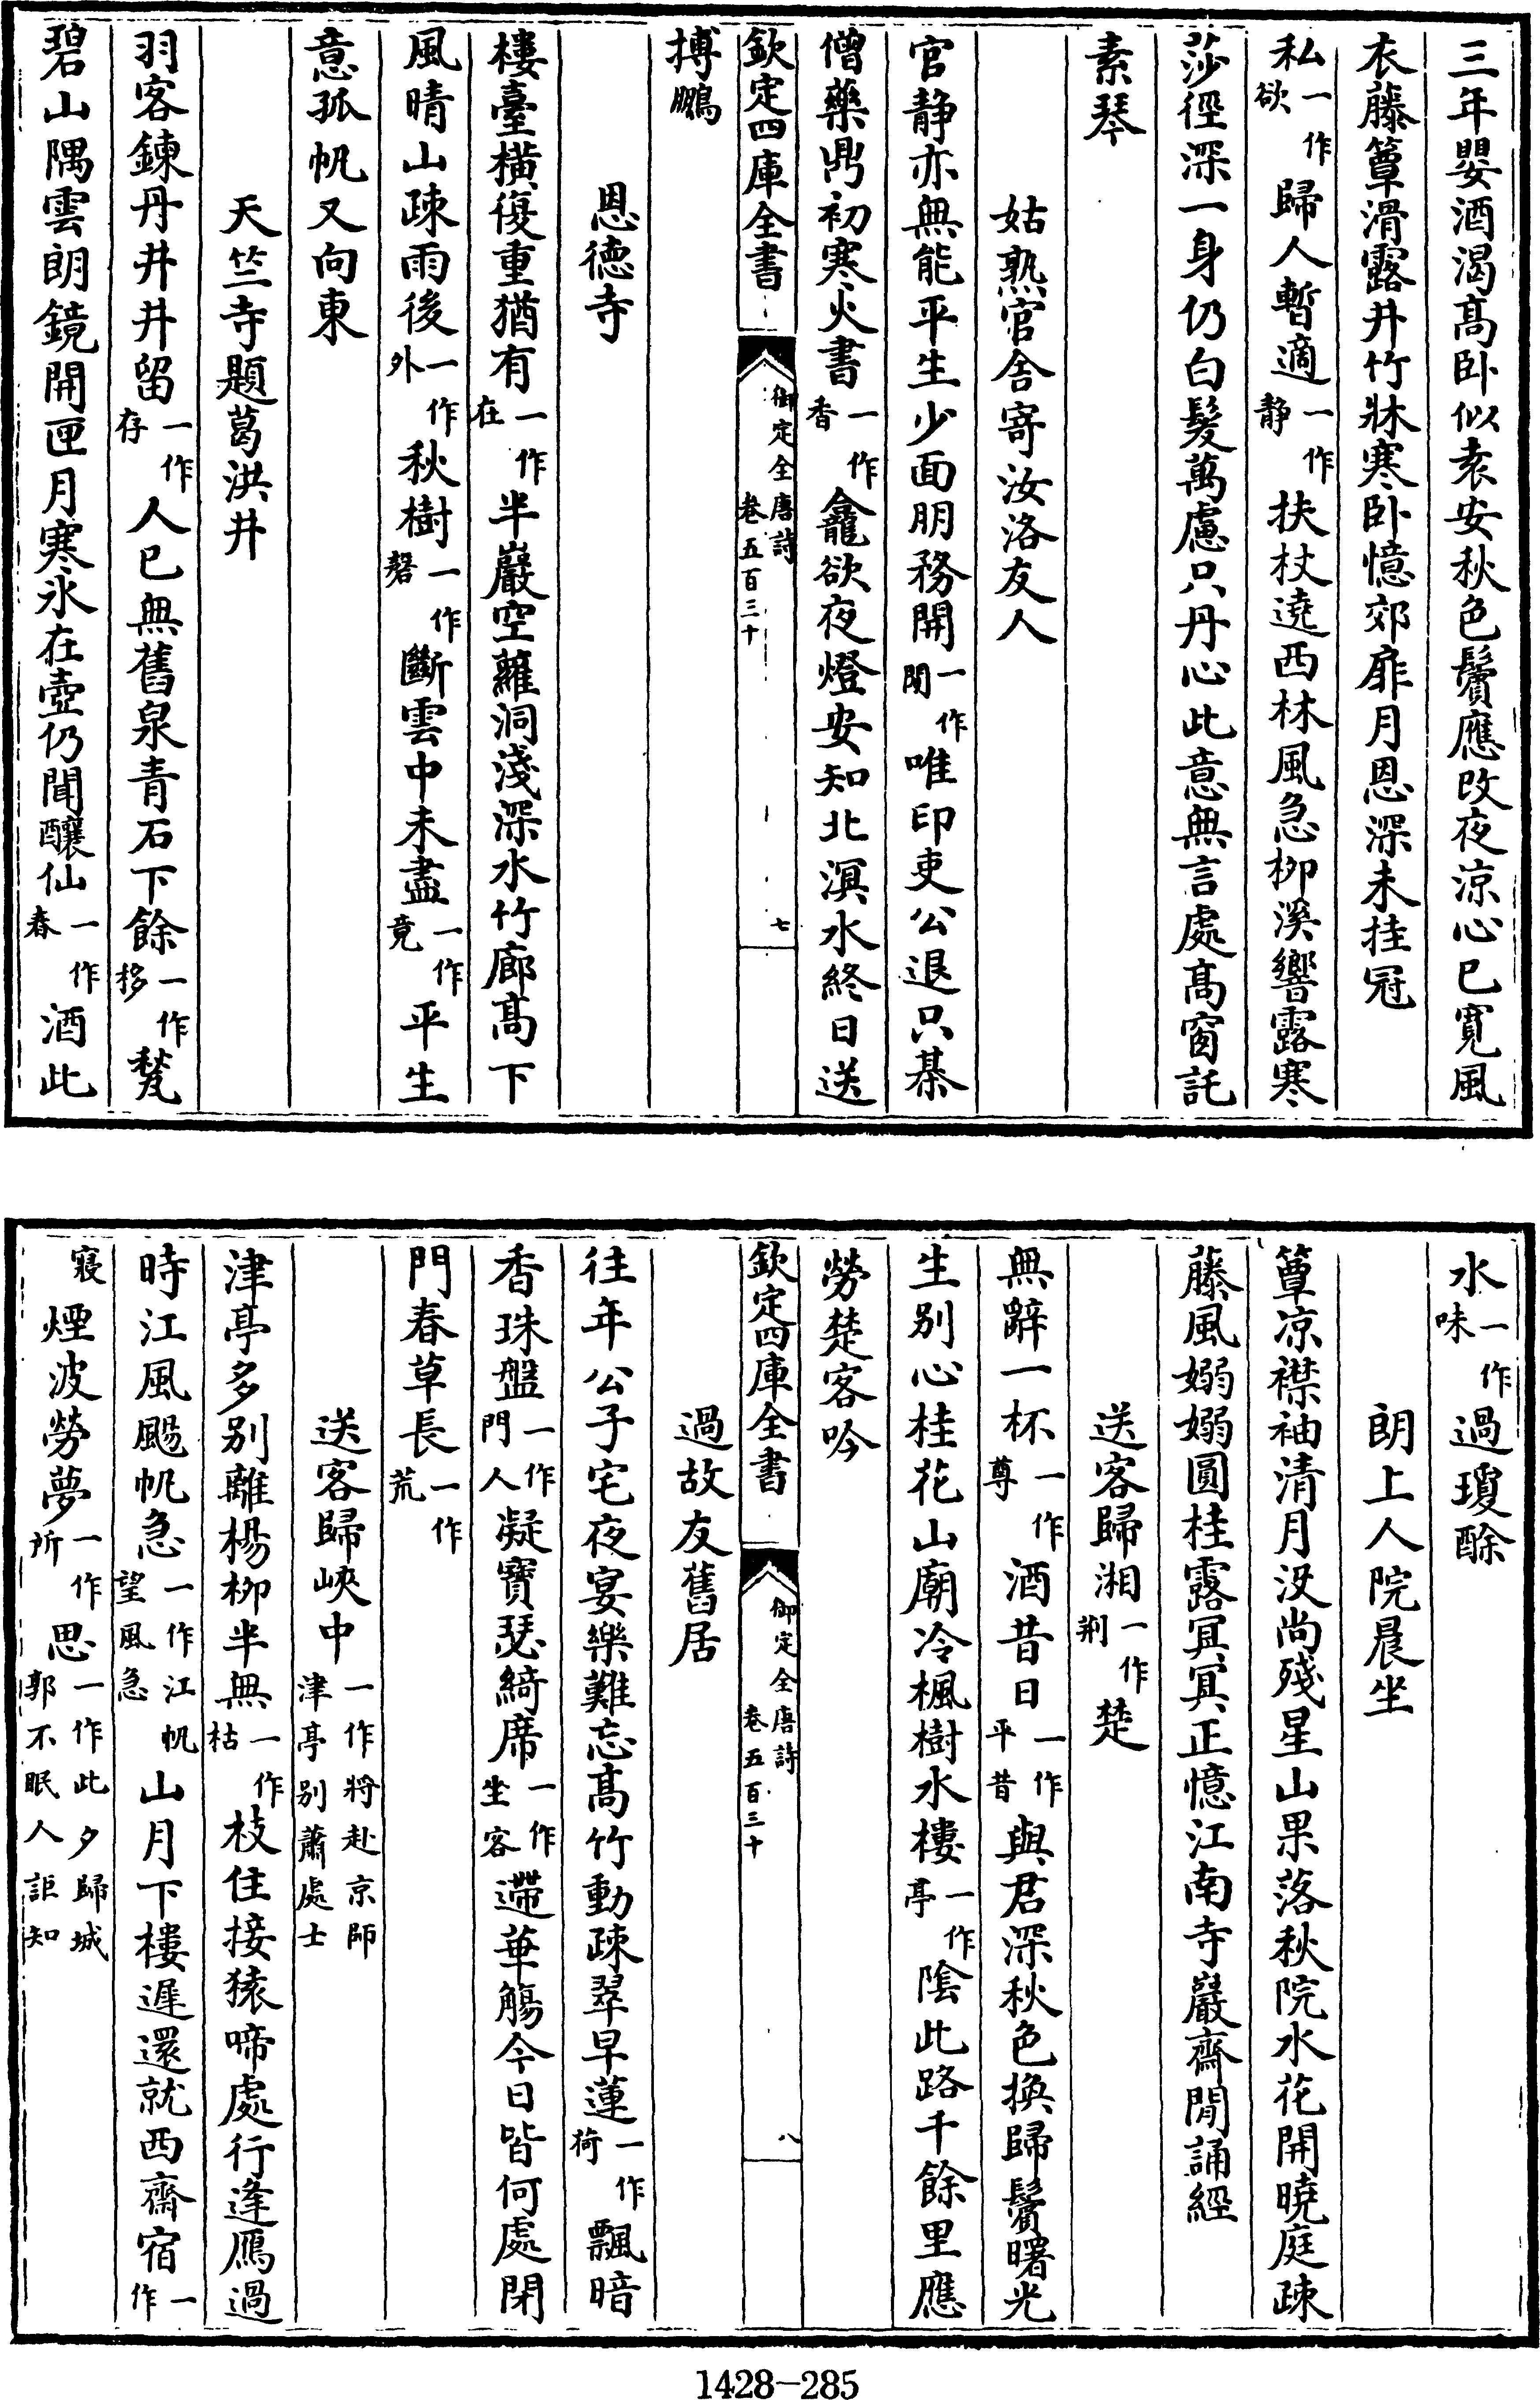 三年嬰酒渴高卧似袁安秋色鬢應改夜涼心已寛風
衣藤簟滑露井竹牀寒卧憶郊扉月恩深未挂冠
私一作欲歸人暫適一作静扶杖遶西林風急柳溪響露寒
莎徑深一身仍白髮萬慮只丹心此意無言處高窗託
素琴
姑熟官舍寄汝洛友人
官静亦無能平生少面朋務開一作閒唯印吏公退只棊
僧藥鼎初寒火書一作香龕欲夜燈安知北溟水終日送
欽定四庫全書
御定全唐詩
卷五百三十
七
搏鵬
恩德寺
樓臺横復重猶有一作在半巖空蘿洞淺深水竹廊高下
風晴山疎雨後一作外秋樹一作磬斷雲中未盡一作竟平生
意孤帆又向東
天竺寺題葛洪井
羽客鍊丹井井留一作存人已無舊泉青石下餘一作移甃
碧山隅雲朗鏡開匣月寒氷在壺仍聞釀仙一作春酒此
水一作味過瓊酴
朗上人院晨坐
簟凉襟袖清月没尚殘星山果落秋院水花開曉庭疎
藤風嫋嫋圓桂露冥冥正憶江南寺巖齋閒誦經
送客歸湘一作荆楚
無辭一杯一作尊酒昔日一作平昔與君深秋色換歸鬢曙光
生别心桂花山廟冷楓樹水樓一作亭隂此路千餘里應
勞楚客吟
欽定四庫全書
御定全唐詩
卷五百三十
八
過故友舊居
往年公子宅夜宴樂難忘高竹動疎翠早蓮一作荷飄暗
香珠盤一作門人凝寶瑟綺席一作坐客遞華觴今日皆何處閉
門春草長一作荒
送客歸峽中一作將赴京師津亭别蕭處士
津亭多别離楊柳半無一作枯枝住接猿啼處行逢鴈過
時江風颺帆急一作江帆望風急山月下樓遲還就西齋宿一作
寢煙波勞夢一作所思一作此夕歸城郭不眠人詎知
1428-285